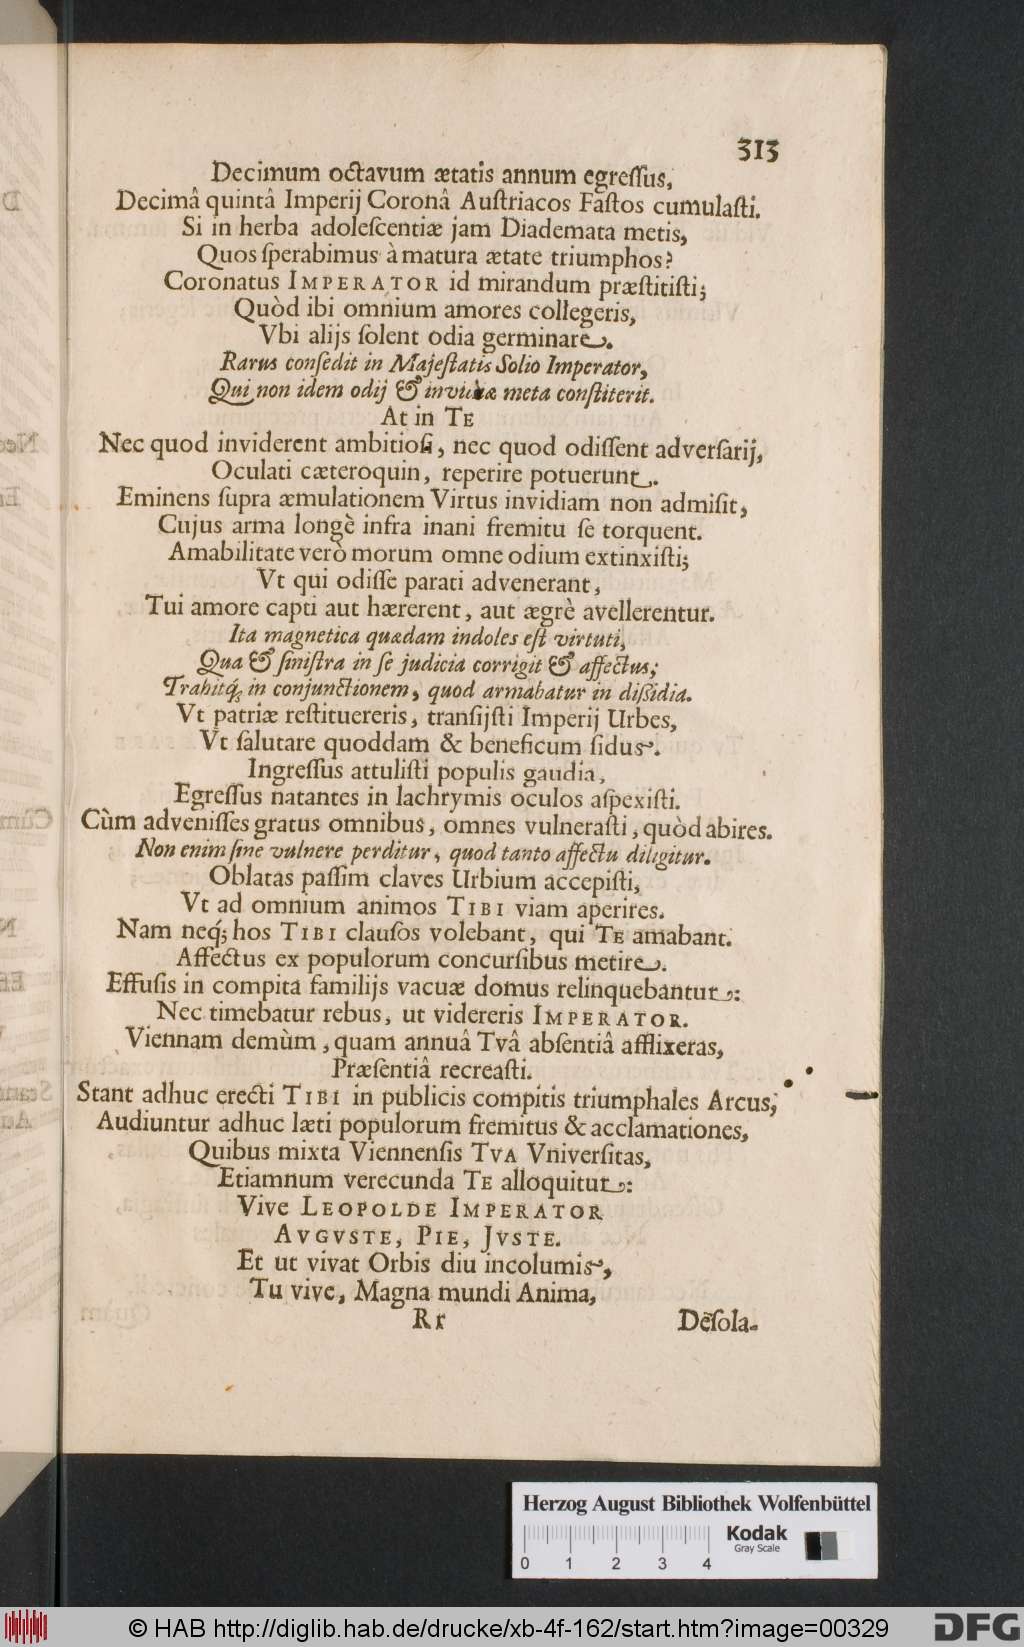 313
Decimum octavum ætatis annum egreſſus,
Decimâ quintâ Imperij Coronâ Auſtriacos Faſtos cumulaſti.
Si in herba adoleſcentiæ jam Diademata metis,
Quos ſperabimus à matura ætate triumphos?
Coronatus IMPERATOR id mirandum præſtitiſti;
Quòd ibi omnium amores collegeris,
Vbi alijs ſolent odia germinare.
Rarus conſedit in Majeſtatis Solio Imperator,
Qui non idem odij & invidiæ meta conſtiterit.
At in TE
Nec quod inviderent ambitioſi, nec quod odiſſent adverſarij,
Oculati cæteroquin, reperire potuerunt.
Eminens ſupra æmulationem Virtus invidiam non admiſit,
Cujus arma longè infra inani fremitu ſe torquent.
Amabilitate verò morum omne odium extinxiſti;
Vt qui odiſſe parati advenerant,
Tui amore capti aut hærerent, aut ægrè avellerentur.
Ita magnetica quædam indoles eſt virtuti,
Qua & ſiniſtra in ſe judicia corrigit & affectus;
Trahitq́; in conjunctionem, quod armabatur in diſsidia.
Vt patriæ reſtituereris, tranſijſti Imperij Urbes,
Vt ſalutare quoddam & beneficum ſidus.
Ingreſſus attuliſti populis gaudia,
Egreſſus natantes in lachrymis oculos aſpexiſti.
Cùm adveniſſes gratus omnibus, omnes vulneraſti, quòd abires.
Non enim ſine vulnere perditur, quod tanto affectu diligitur.
Oblatas paſſim claves Urbium accepiſti,
Vt ad omnium animos TIBI viam aperires.
Nam neq́; hos TIBI clauſos volebant, qui TE amabant.
Affectus ex populorum concurſibus metire.
Effuſis in compita familijs vacuæ domus relinquebantur:
Nec timebatur rebus, ut videreris IMPERATOR.
Viennam demùm, quam annuâ Tvâ abſentiâ afflixeras,
Præſentiâ recreaſti.
Stant adhuc erecti TIBI in publicis compitis triumphales Arcus,
Audiuntur adhuc læti populorum fremitus & acclamationes,
Quibus mixta Viennenſis TVA Vniverſitas,
Etiamnum verecunda TE alloquitur:
Vive LEOPOLDE IMPERATOR
AVGVSTE, PIE, JVSTE.
Et ut vivat Orbis diu incolumis,
Tu vive, Magna mundi Anima,
Rr Deſola-
Herzog August Bibliothek Wolfenbüttel
Kodak
Gray Scale
0 1 2 3 4
© HAB http://diglib.hab.de/drucke/xb-4f-162/start.htm?image=00329
DFG